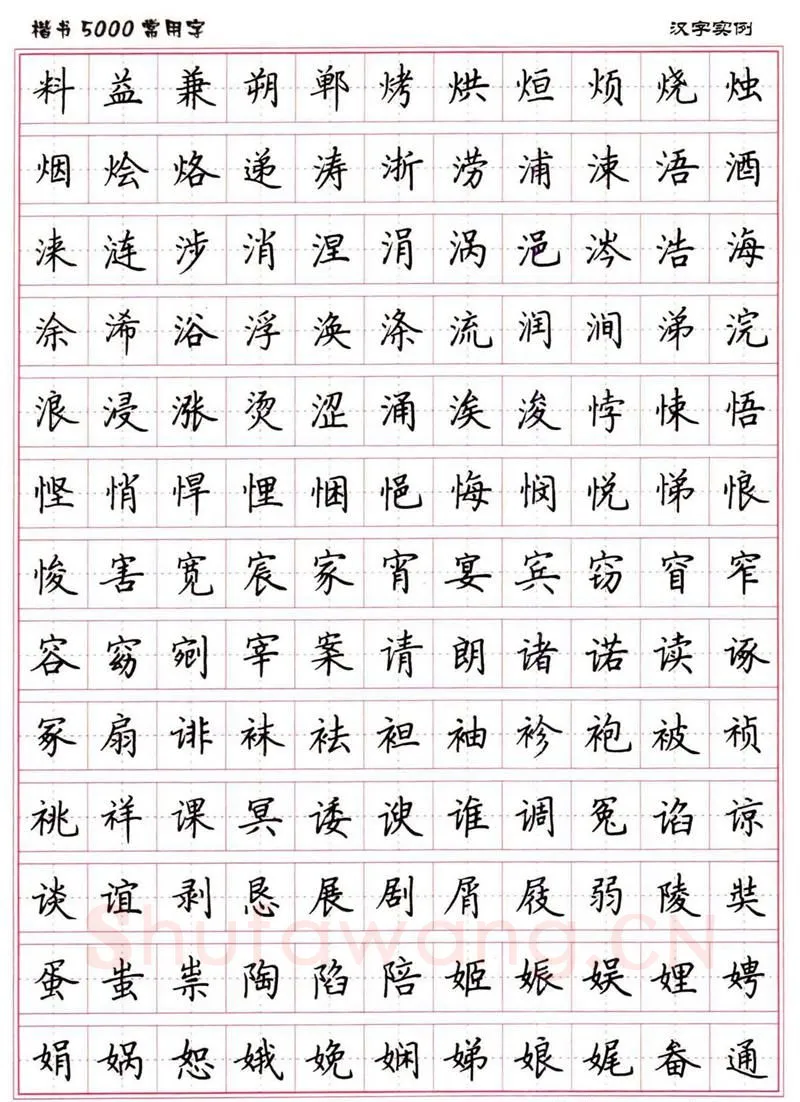 楷书 5000 常用字 汉字实例
料益兼朔郸烤烘烜烦烧烛
烟烩烙递涛浙涝浦涑浯酒
涞涟涉消涅涓涡浥涔浩海
涂浠浴浮涣涤流润涧涕浣
浪浸涨烫涩涌涘浚悖悚悟
悭悄悍悝悃悒悔悯悦悌悢
悛害宽宸家宵宴宾窃窅窄
容窈剜宰案请朗诸诺读诼
冢扇诽袜袪袒袖袗袍被祯
祧祥课冥诿谀谁调冤谄谅
谈谊剥恳展剧屑屐弱陵奘
蛋蚩祟陶陷陪姬娠娱娌娉
娟娲恕娥娩娴娣娘娓畚通
Shufawang.CN